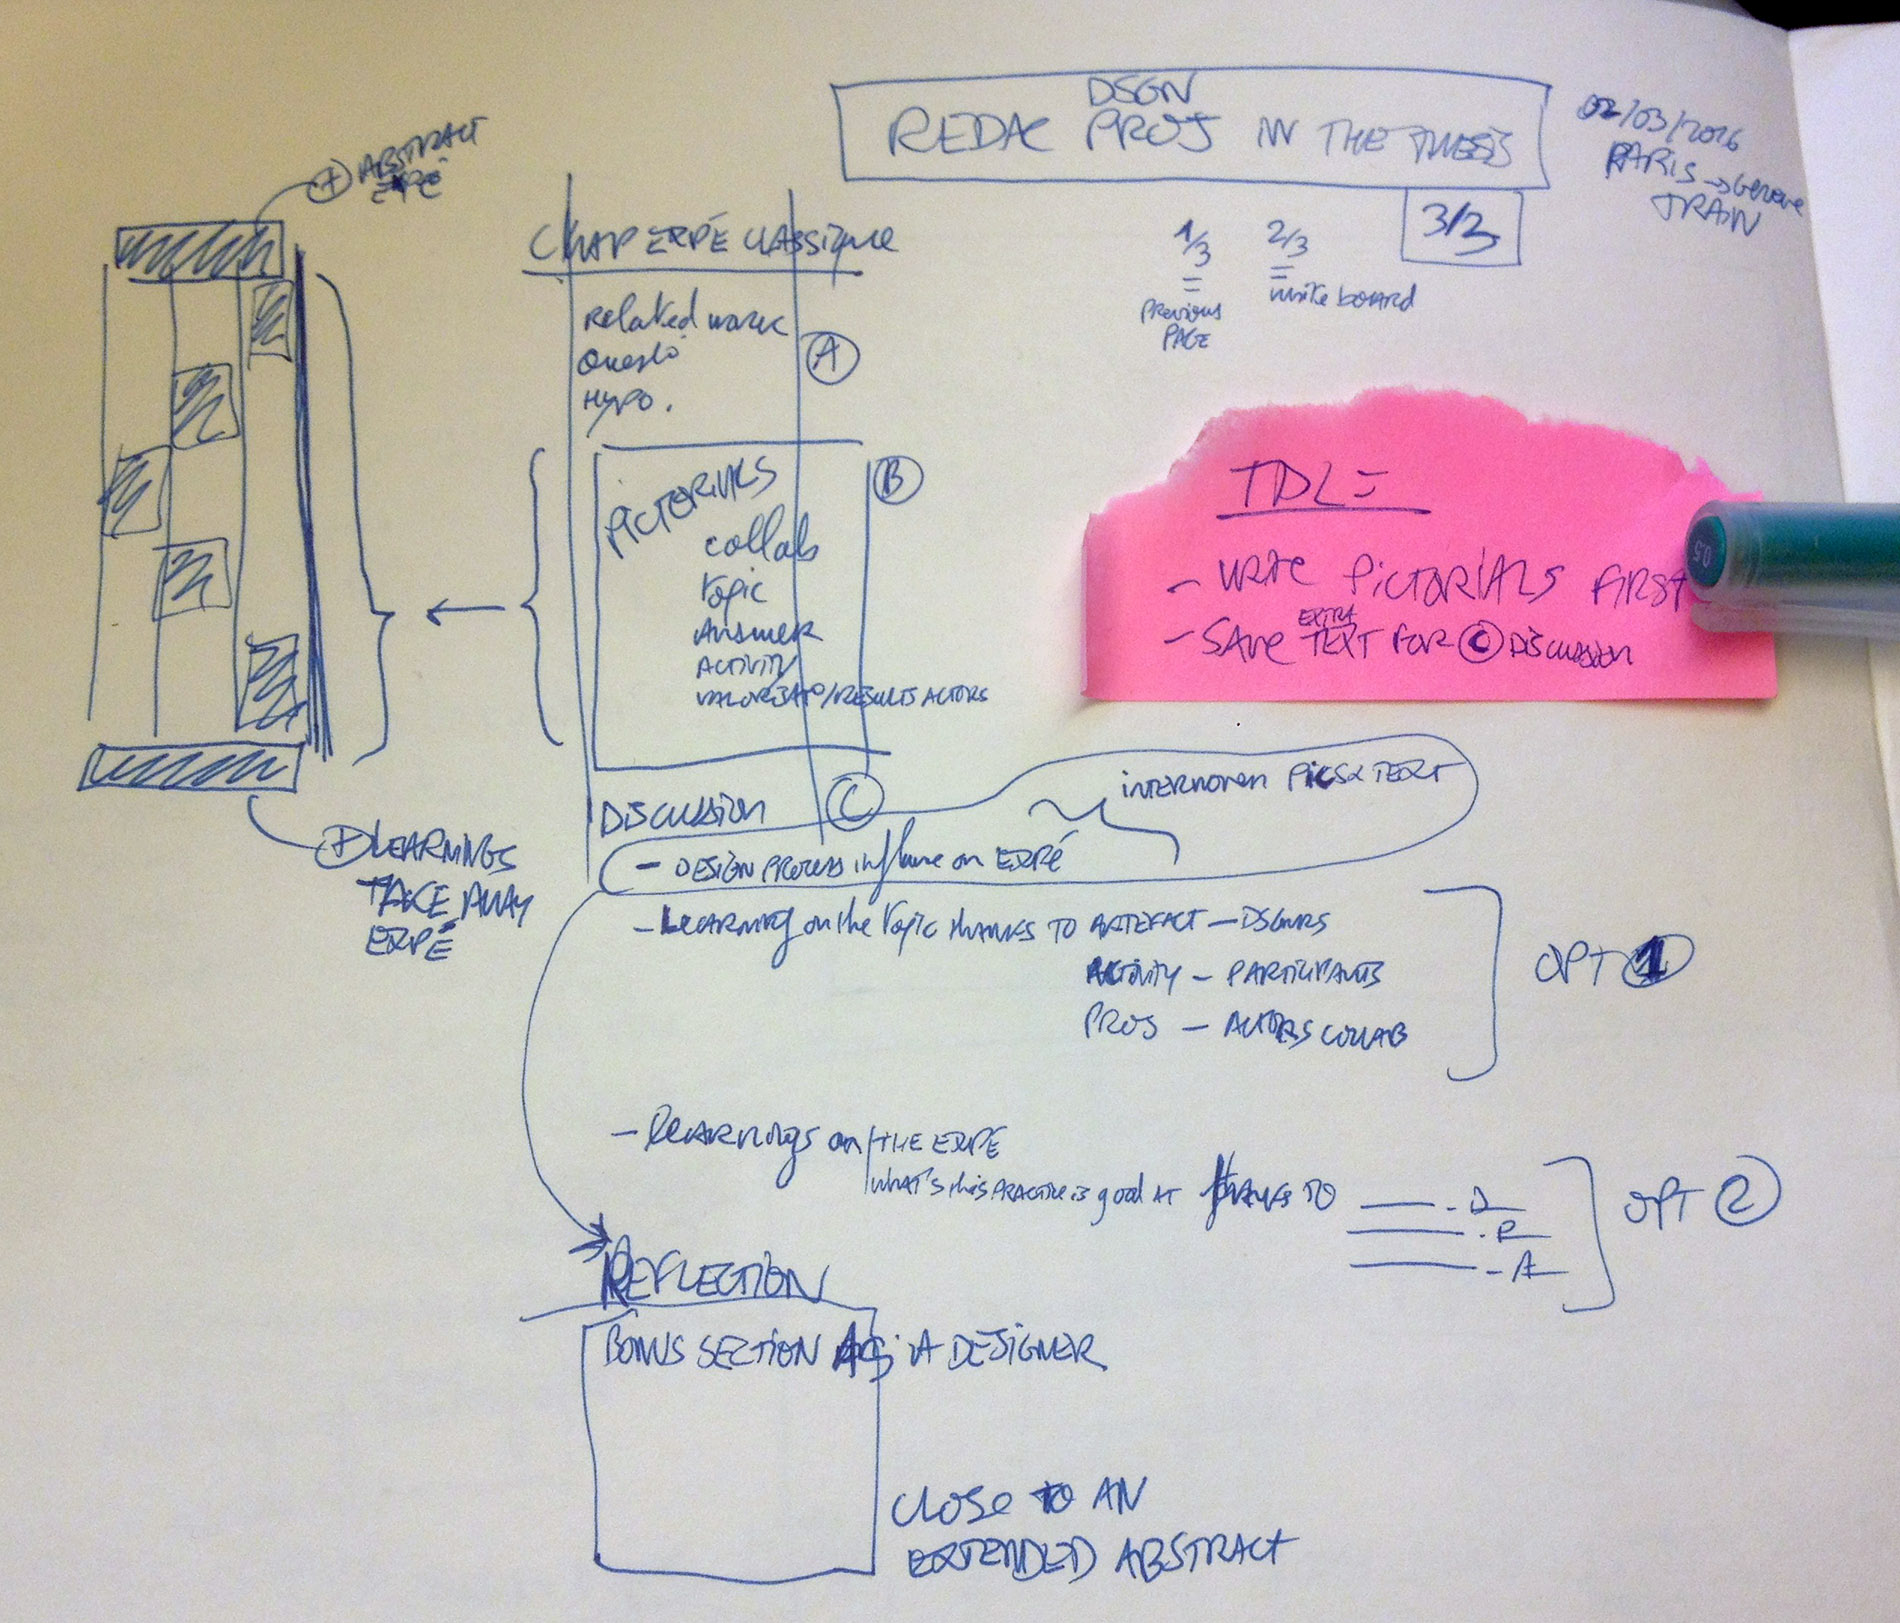 DSGN
REDAC PROJ IN THE THESIS
02/03/2016
PARIS → Geneve
TRAIN
1/3
=
previous
PAGE
2/3
=
white board
3/3
+ ABSTRACT
EXPÉ
CHAP EXPÉ CLASSIQUE
Related work
Questo
HYPO.
A
PICTORIALS
collab
topic
Answer
ACTIVITY
VALORISATO/RESULTS ACTORS
B
TDL =
- WRITE PICTORIALS FIRST
EXTRA
- SAVE TEXT FOR C DISCUSSION
DISCUSSION
C
INTERWOVEN PICS & TEXT
- DESIGN PROCESS influence on EXPÉ
- LEARNING on the topic thanks TO ARTEFACT — DSGNRS
ACTIVITY — PARTICIPANTS
PROJ — ACTORS COLLAB
OPT 1
+ LEARNINGS
TAKE AWAY
EXPÉ
- LEARNINGS on / THE EXPÉ
/ WHAT'S this PRACTICE is good AT thanks TO
- D
- P
- A
OPT 2
REFLECTION
BONUS SECTION AS A DESIGNER
CLOSE TO AN
EXTENDED ABSTRACT
0.5